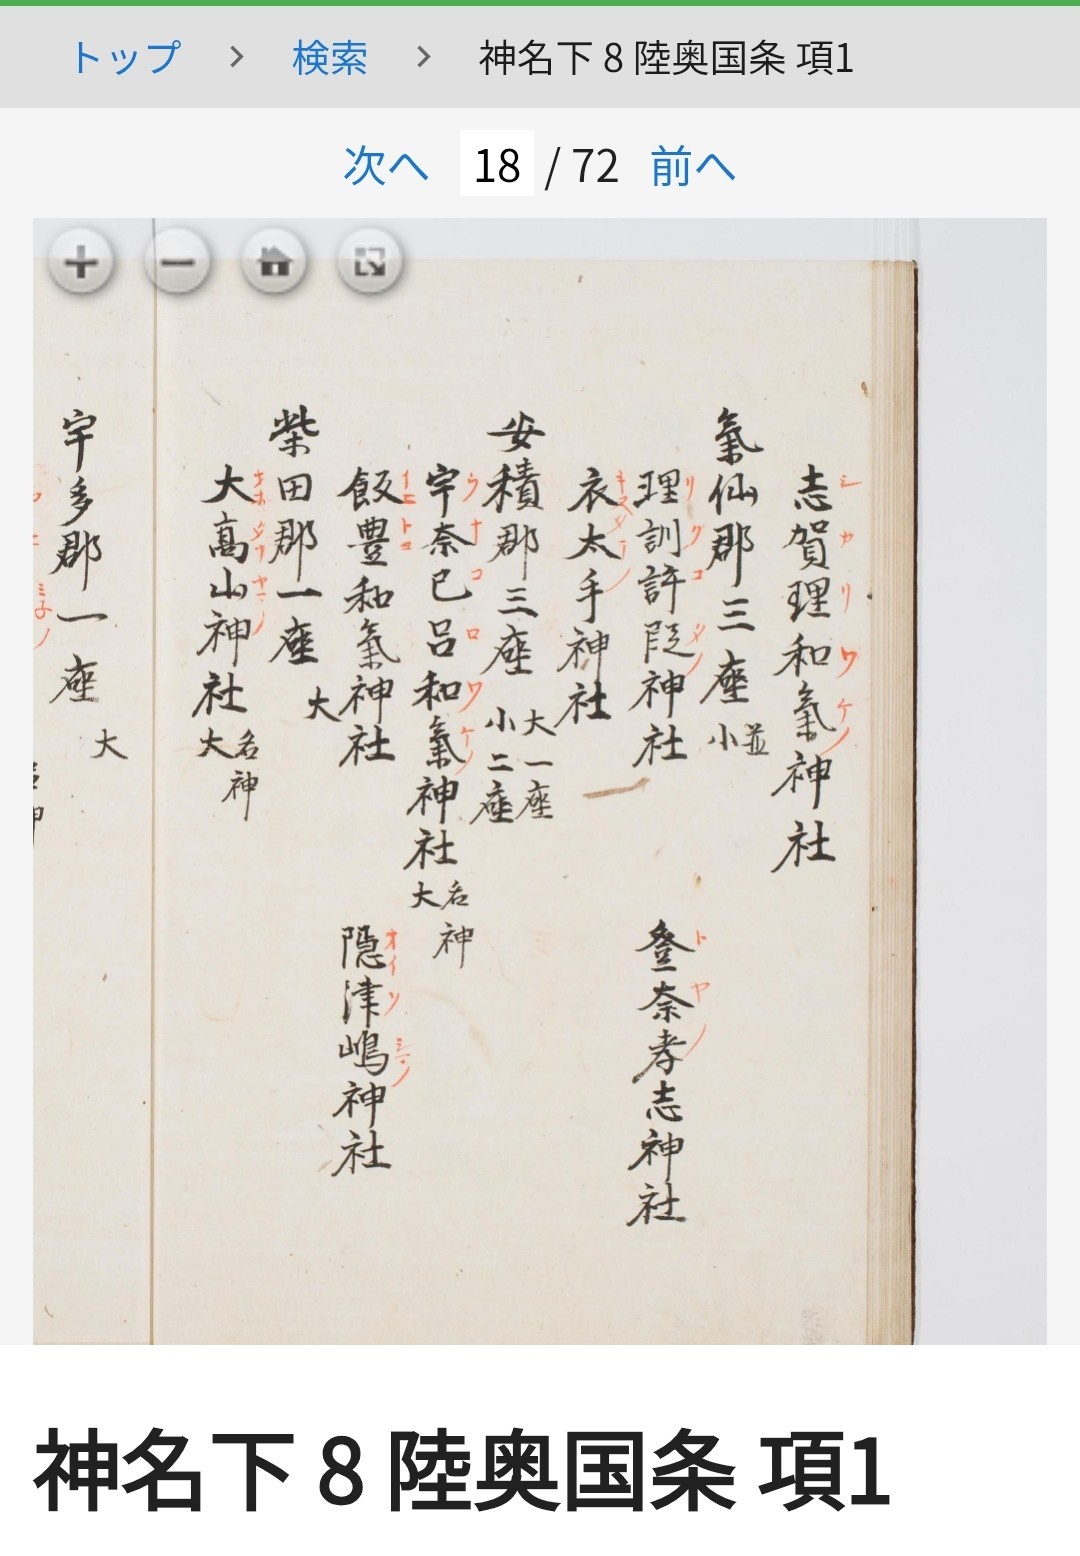 トップ > 検索 > 神名下 8 陸奥国条 項1
次へ 18 / 72 前へ
志賀理和氣神社
シカリワケノ
氣仙郡三座
並小
理訓許段神社
リクコタノ
登奈孝志神社
トヤノ
衣太手神社
キヌタテノ
安積郡三座
大一座
小二座
宇奈己呂和氣神社
ウナコロワケノ
名神大
飯豊和氣神社
イヒトヨ
隠津嶋神社
オイツシマノ
柴田郡一座
大
大高山神社
オホタカヤマノ
名神大
宇多郡一座
大
神名下 8 陸奥国条 項1